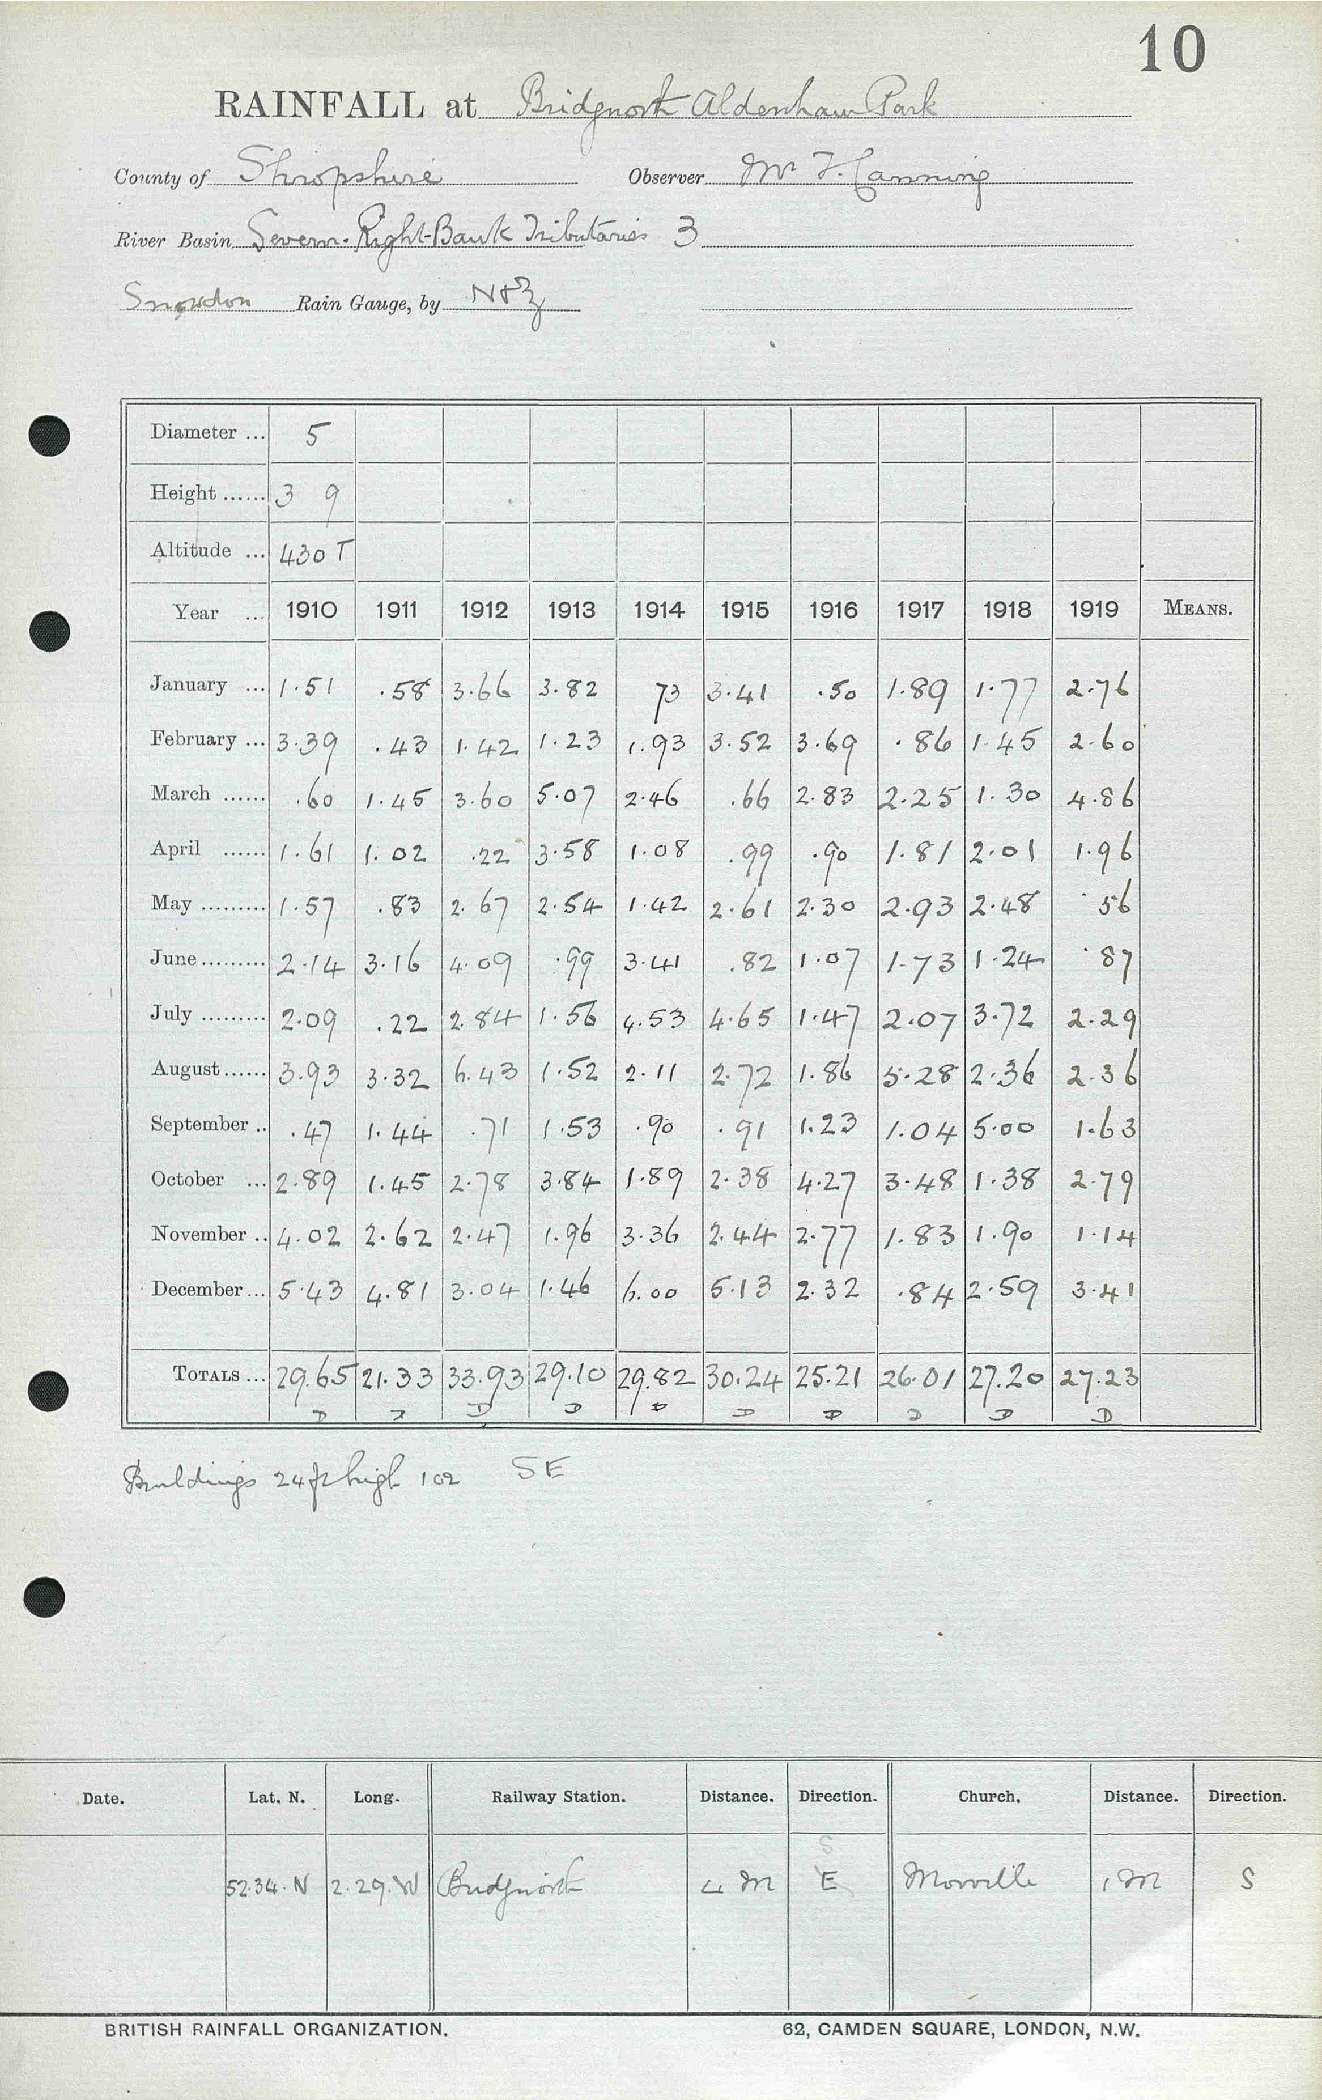 10
RAINFALL at Bridgnorth Aldenham Park
County of Shropshire Observer Mr T. Canning
River Basin Severn-Right-Bank Tributaries 3
Snowdon Rain Gauge, by N & Z
Diameter ... 5
Height ...... 3 9
Altitude ... 430 T
Year ... 1910 1911 1912 1913 1914 1915 1916 1917 1918 1919 MEANS.
January ... 1.51 .58 3.66 3.82 73 3.41 .50 1.89 1.77 2.76
February ... 3.39 .43 1.42 1.23 1.93 3.52 3.69 .86 1.45 2.60
March ...... .60 1.45 3.60 5.07 2.46 .66 2.83 2.25 1.30 4.86
April ...... 1.61 1.02 .22 3.58 1.08 .99 .90 1.81 2.01 1.96
May ......... 1.57 .83 2.67 2.54 1.42 2.61 2.30 2.93 2.48 .56
June ......... 2.14 3.16 4.09 .99 3.41 .82 1.07 1.73 1.24 .87
July ......... 2.09 .22 2.84 1.56 4.53 4.65 1.47 2.07 3.72 2.29
August ...... 3.93 3.32 6.43 1.52 2.11 2.72 1.86 5.28 2.36 2.36
September .. .47 1.44 .71 1.53 .90 .91 1.23 1.04 5.00 1.63
October ... 2.89 1.45 2.78 3.84 1.89 2.38 4.27 3.48 1.38 2.79
November .. 4.02 2.62 2.47 1.96 3.36 2.44 2.77 1.83 1.90 1.14
December ... 5.43 4.81 3.04 1.46 6.00 5.13 2.32 .84 2.59 3.41
TOTALS ... 29.65 21.33 33.93 29.10 29.82 30.24 25.21 26.01 27.20 27.23
D D D D D D D D D D
Buildings 24ft high 102 SE
Date. Lat. N. Long. Railway Station. Distance. Direction. Church. Distance. Direction.
S
52.34.N 2.29.W Bridgnorth 4 M E Morville 1 M S
BRITISH RAINFALL ORGANIZATION. 62, CAMDEN SQUARE, LONDON, N.W.